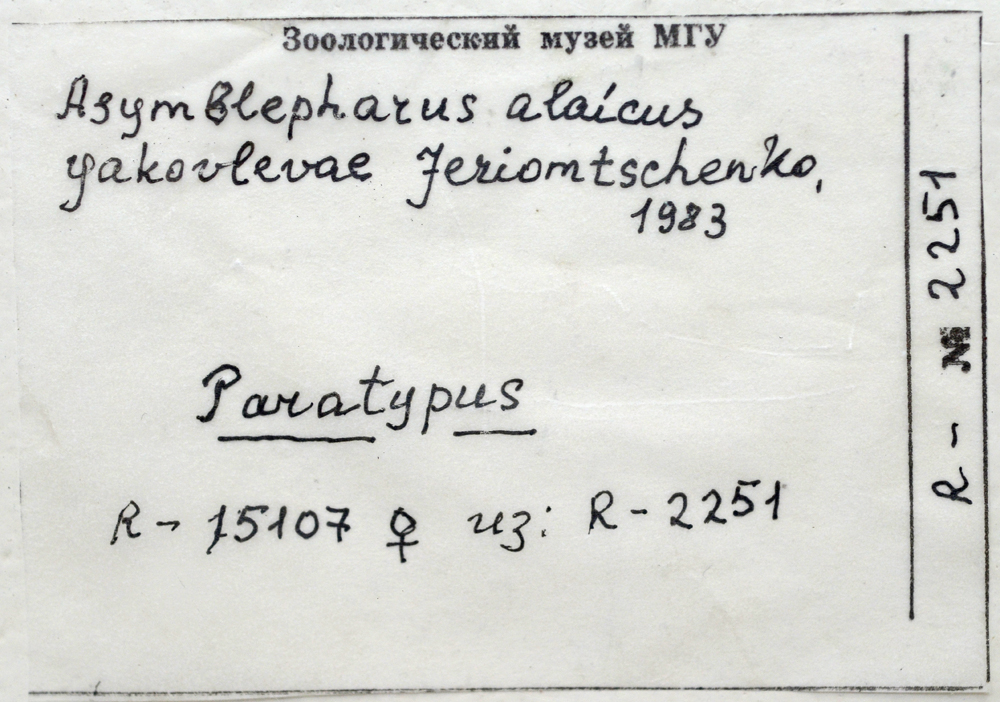 Зоологический музей МГУ
Asymblepharus alaicus
yakovlevae Jeriomtschenko,
1983
Paratypus
R - 15107 ♀ из: R - 2251
R - № 2251